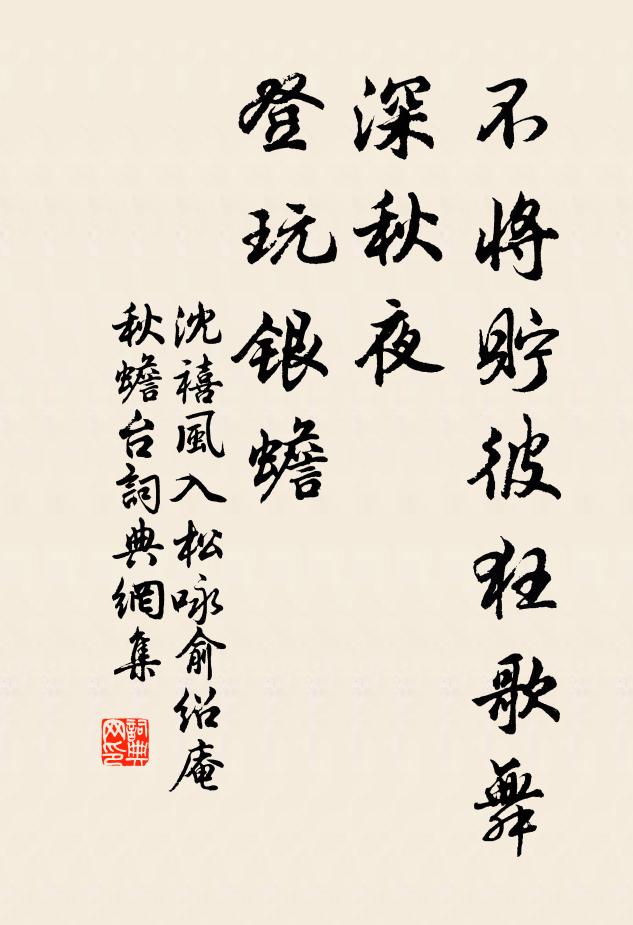 不將貯彼狂歌舞
深秋夜
登玩銀蟾
沈禧風入松咏俞紹庵
秋蟾台詞典網集
詞典
网印